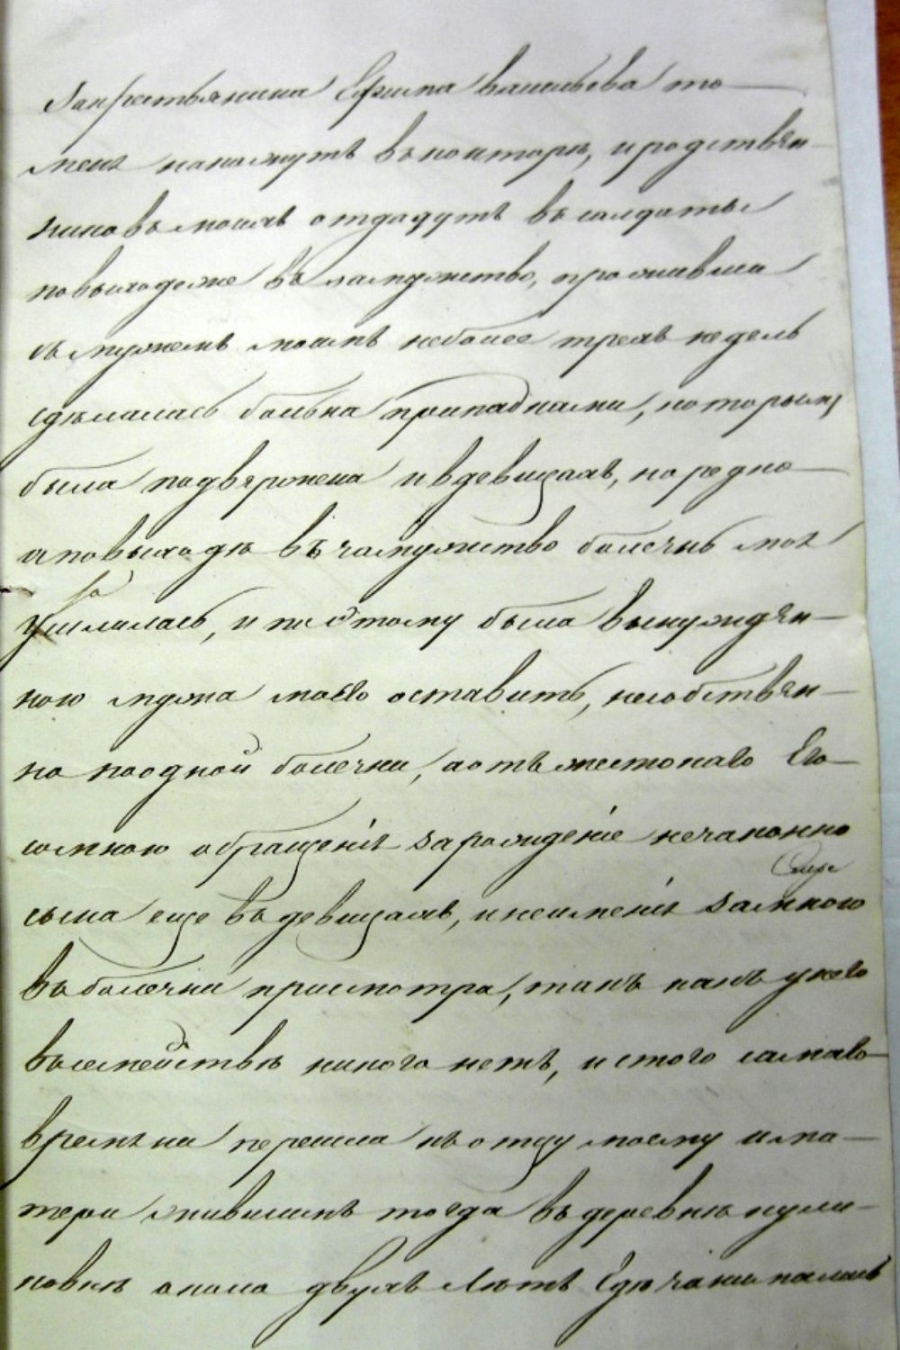 закрестьянина Ефима васильева то-
меня накажутъ въ конторе, и родствен-
никовъ моихъ отдадутъ въ солдаты
по выходеже въ замужство, проживши
съ мужемъ моимъ не более трехъ недель
сделалась больна припадками, которыми
была подвержена и въ девицахъ, но редко
а по выходе въ замужство болезнь моя
усилилась, и по этому была вынужден-
ною мужа моево оставить, не собствен-
но по одной болезни, а отъ жестокаго Его
сомною обращенія за рождение незаконно
сына еще въ девицахъ, и неимения замною
въ болезни присмотра, такъ какъ у него
въ семействе никого нетъ, и стого самаво
времяни перешла къ отцу моему и ма-
тери жившимъ тогда въ деревне кули-
ковке около двухъ Летъ где занималась